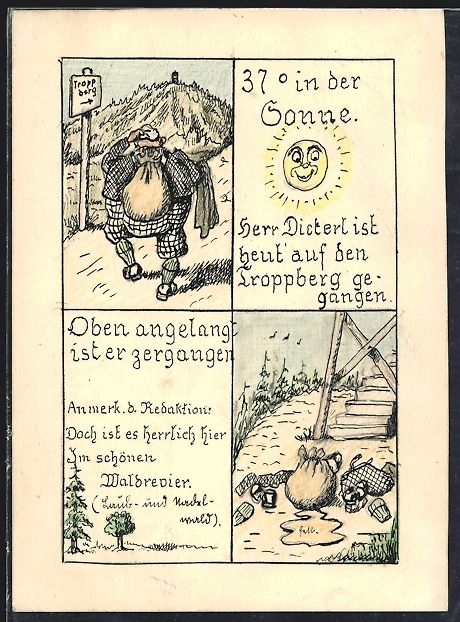 Tropp
berg
37° in der
Sonne.
Herr Dieterl ist
heut' auf den
Troppberg ge-
gangen.
Oben angelangt
ist er zergangen
Anmerk. d. Redaktion:
Doch ist es herrlich hier
Im schönen
Waldrevier.
(Laub- und Nadel-
wald).
Fett.